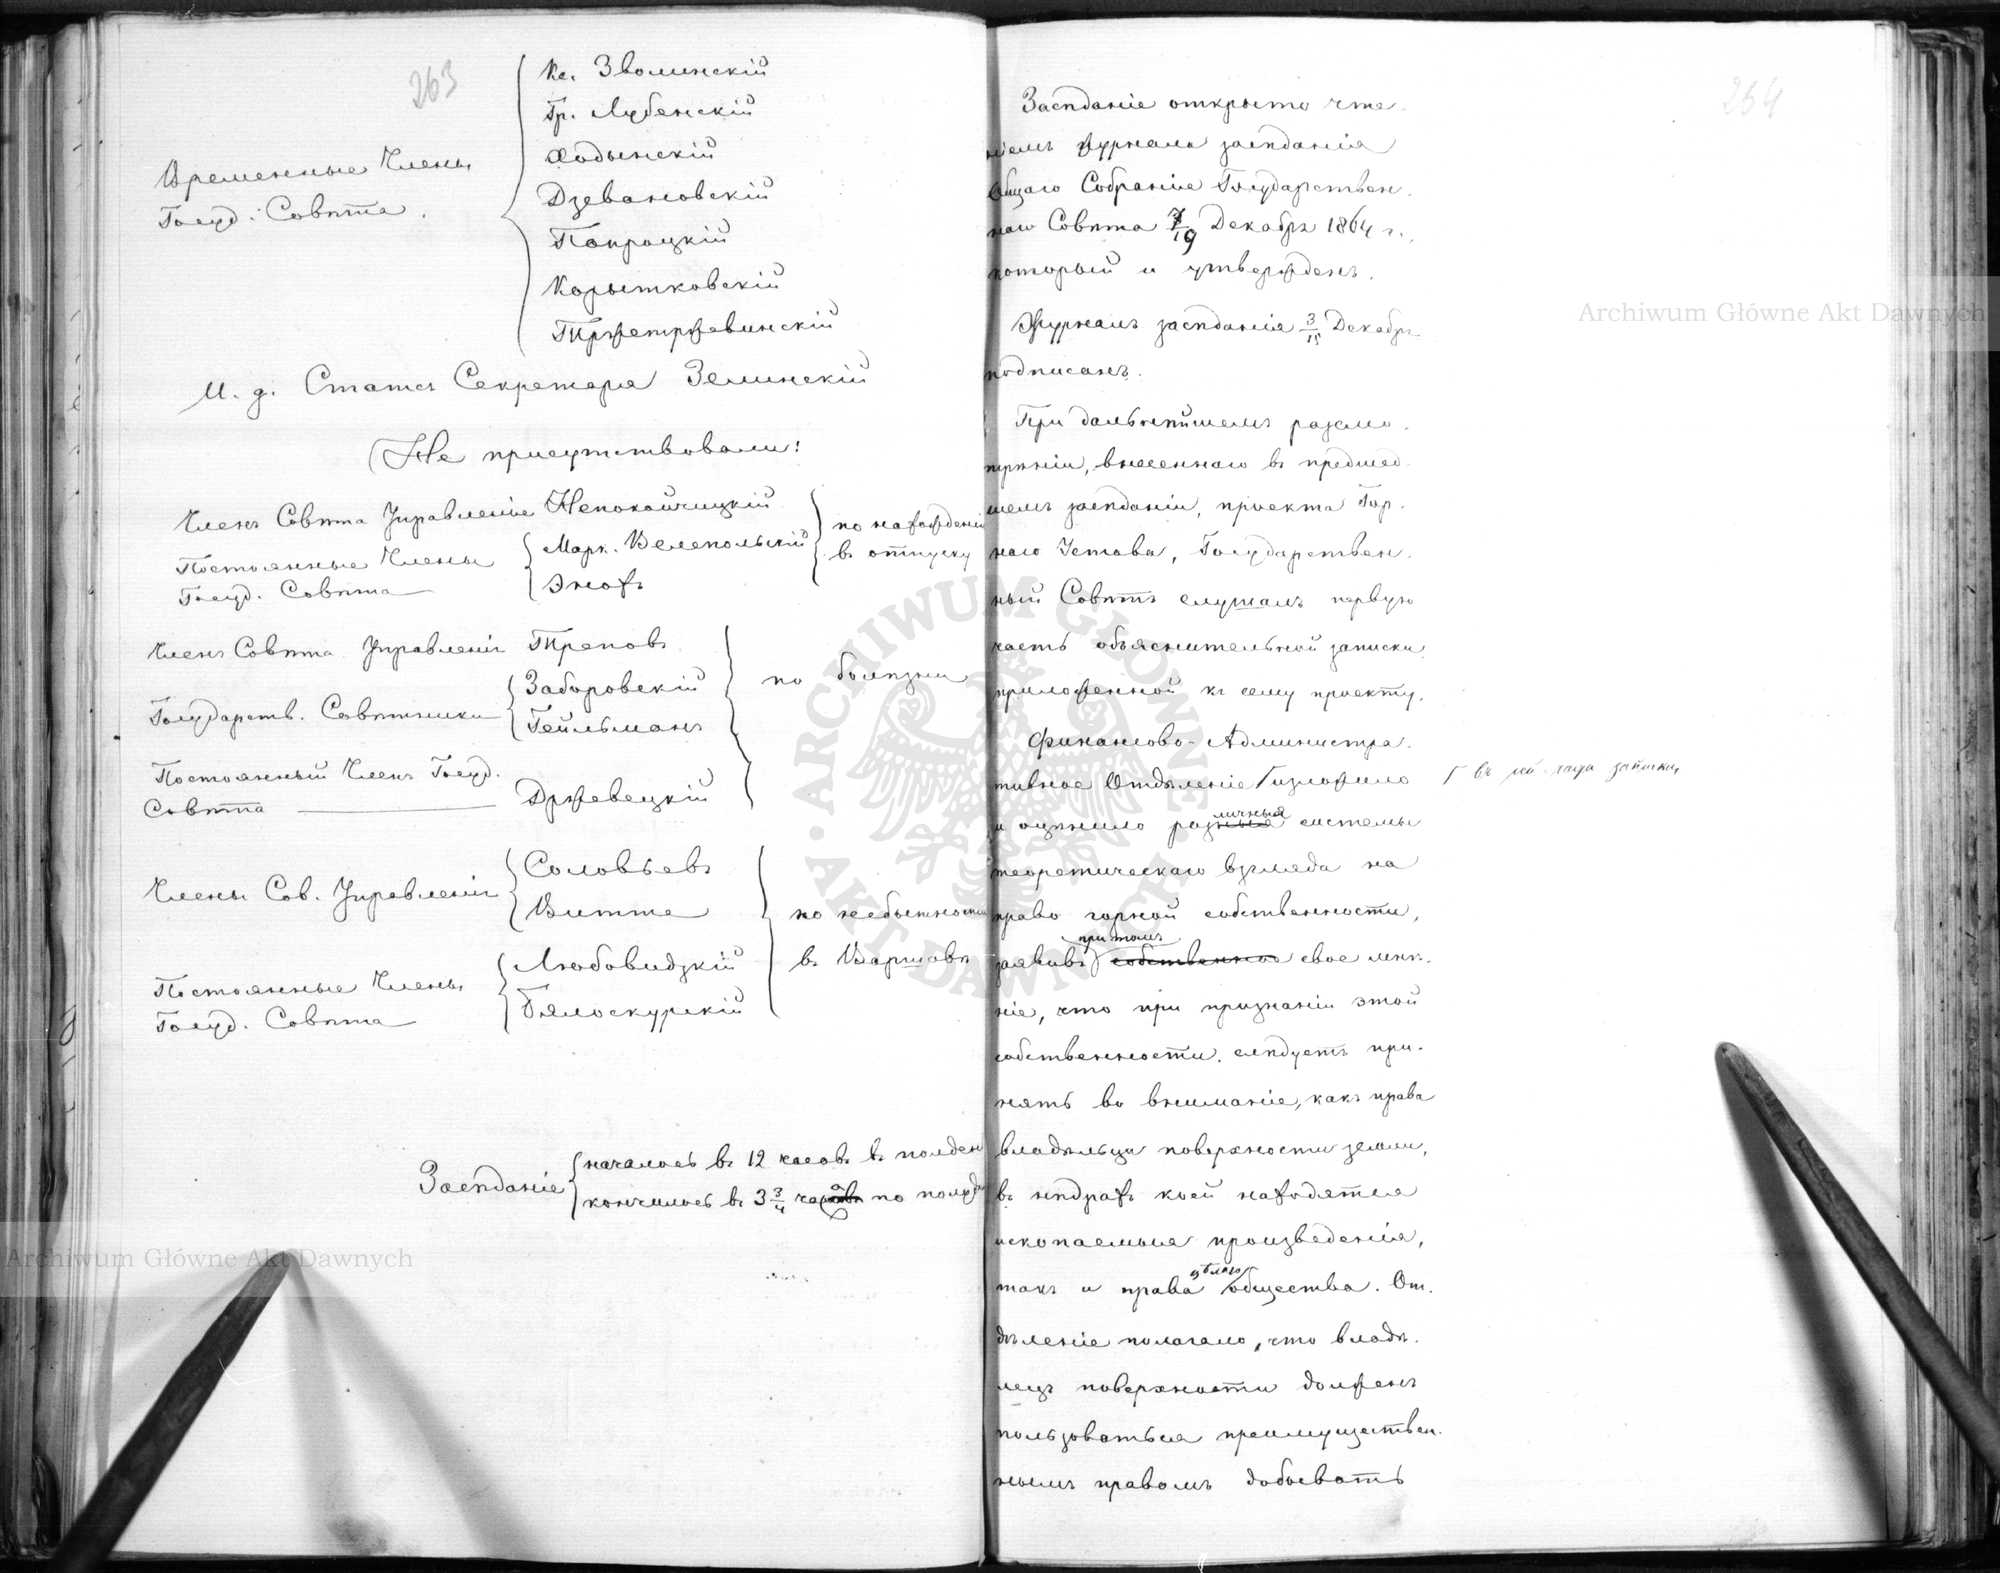 263
Временные Члены
Госуд. Совѣта.
Кс. Зволинскій
Гр. Лубенскій
Ходынскій
Дзевановскій
Попроцкій
Корытковскій
Тржетржевинскій
И. д. Статсъ Секретаря Зелинскій
Не присутствовали:
Членъ Совѣта Управленія Непокойчицкій
Постоянные Члены
Госуд. Совѣта
Марк. Велепольскій
Энохъ
по нахожденію
въ отпуску
Членъ Совѣта Управленія Треповъ
Государств. Совѣтники
Заборовскій
Гейльманъ
Постоянный Членъ Госуд.
Совѣта
Држевецкій
по болѣзни
Члены Сов. Управленія
Соловьевъ
Витте
Постоянные Члены
Госуд. Совѣта
Любовидзкій
Бялоскурскій
по небытности
въ Варшавѣ
Засѣданіе
началось въ 12 часовъ въ полдень
кончилось въ 3 3/4 часа по полудни
264
Засѣданіе открыто чте-
ніемъ журнала засѣданія
Общаго Собранія Государствен-
наго Совѣта 7/19 Декабря 1864 г.,
который и утвержденъ.
Журналъ засѣданія 3/15 Декабря
подписанъ.
При дальнѣйшемъ разсмо-
трѣніи, внесеннаго въ предшед-
шемъ засѣданіи, проекта Гор-
наго Устава, Государствен-
ный Совѣтъ слушалъ первую
часть объяснительной записки
приложенной къ сему проекту.
Финансово-Администра-
тивное Отдѣленіе Γ изложило
Γ въ записки
и оцѣнило различныя системы
теоретическаго взгляда на
право горной собственности,
заявивъ при томъ собственное свое мнѣ-
ніе, что при признаніи этой
собственности, слѣдуетъ при-
нять во вниманіе, какъ права
владѣльца поверхности земли,
въ нѣдрахъ коей находятся
ископаемыя произведенія,
такъ и права цѣлаго общества. От-
дѣленіе полагало, что владѣ-
лецъ поверхности долженъ
пользоваться преимуществен-
нымъ правомъ добывать
Archiwum Główne Akt Dawnych
Archiwum Główne Akt Dawnych
ARCHIWUM GŁÓWNE AKT DAWNYCH